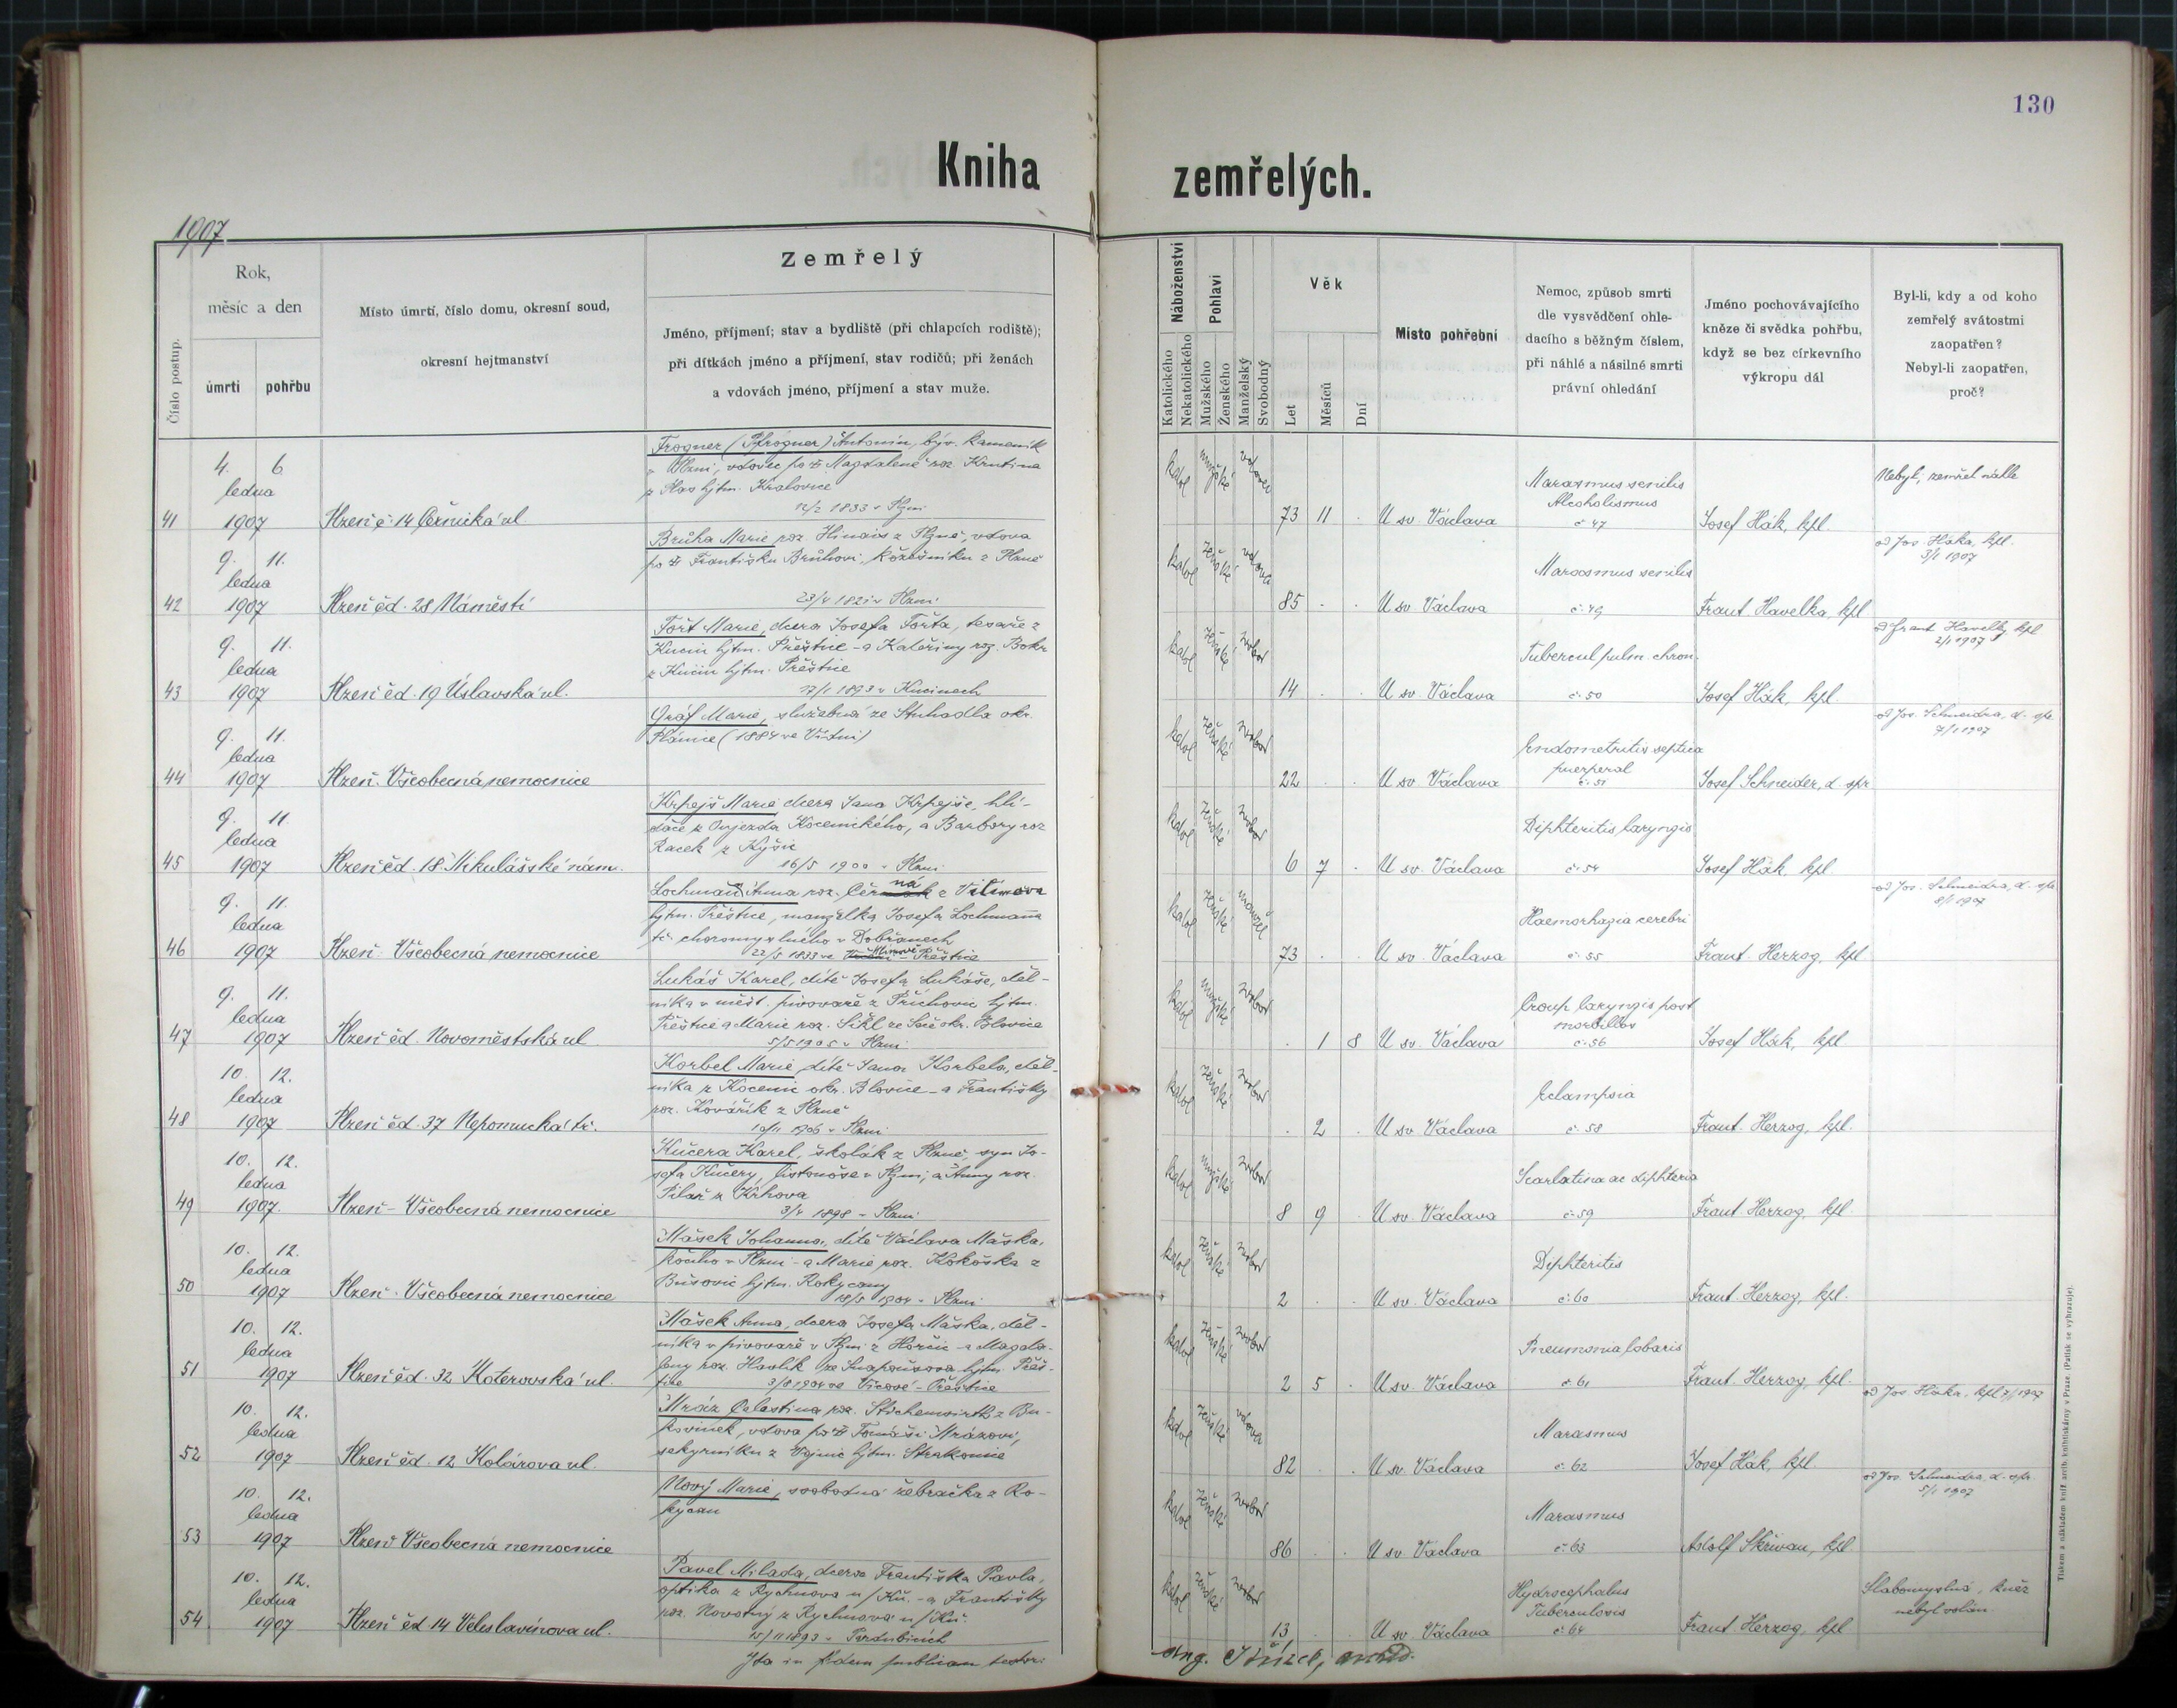 130
Kniha zemřelých.
1907
Číslo postup.
Rok,
měsíc a den
úmrtí
pohřbu
Místo úmrtí, číslo domu, okresní soud,
okresní hejtmanství
Zemřelý
Jméno, příjmení; stav a bydliště (při chlapcích rodiště);
při dítkách jméno a příjmení, stav rodičů; při ženách
a vdovách jméno, příjmení a stav muže.
Náboženství
Katolického
Nekatolického
Pohlaví
Mužského
Ženského
Manželský
Svobodný
Věk
Let
Měsíců
Dní
Místo pohřební
Nemoc, způsob smrti
dle vysvědčení ohle-
dacího s běžným číslem,
při náhlé a násilné smrti
právní ohledání
Jméno pochovávajícího
kněze či svědka pohřbu,
když se bez církevního
výkropu dál
Byl-li, kdy a od koho
zemřelý svátostmi
zaopatřen?
Nebyl-li zaopatřen,
proč?
Frogner (Pfrogner) Antonín, býv. kameník
v Plzni, vdovec po Magdaleně roz. Krutina
z Plas hjtm. Kralovice
1833 v Plzni
4. 6
ledna
41 1907 Plzeň č. 14 Pernická ul
katol mužské vdovec
73 11 U sv. Václava
Marasmus senilis
Alcoholismus
č 47
Josef Hák, kpl.
Nebyl, zemřel náhle
Brůha Marie roz. z Plzně, vdova
po Františku Brůhovi, kožešníku z Plzně
9. 11.
ledna
42 1907 Plzeň čd. 28 Náměstí
v Plzni
katol ženské vdova
85 U sv. Václava
Marasmus senilis
č. 49
Frant. Havelka, kpl
od Jos. Háka, kpl.
3/1 1907
Fořt Marie, dcera Josefa Fořta, tesaře z
hjtm. Přeštice - a Kateřiny roz.
z hjtm. Přeštice
17/1 1893 v
9. 11.
ledna
43 1907 Plzeň čd. 19 Úslavská ul.
katol ženské svobod
14 U sv. Václava
Tubercul pulm. chron.
č. 50
Josef Hák, kpl.
od Frant. Havelky, kpl
2/1 1907
Gráf Marie, služebná ze Struhadla okr.
Plánice (1884 ve Vídni)
9. 11.
ledna
44 1907 Plzeň. Všeobecná nemocnice
katol ženské svobod
22 U sv. Václava
Endometritis septica
puerperal
č. 51
Josef Schneider, d. spr
od Jos. Schneidra, d. spr.
7/1 1907
Krpejš Marie, dcera Jana Krpejše, hlí-
dače z Oujezda Kocenického, a Barbory roz
Racek z Kyšic
16/5 1900 v Plzni
9. 11.
ledna
45 1907 Plzeň čd. 18 Mikulášské nám.
katol ženské svobod
6 7 U sv. Václava
Diphteritis laryngis
č. 54
Josef Hák, kpl.
Lochman Anna roz. z
hjtm. Přeštice, manželka Josefa Lochmana
tč. choromyslného v Dobřanech
22/5 1833 ve Přeštice
9. 11.
ledna
46 1907 Plzeň. Všeobecná nemocnice
katol ženské manžel
73 U sv. Václava
Haemorhagia cerebri
č. 55
Frant. Herzog, kpl
od Jos. Schneidra, d. spr.
8/1 1907
Lukáš Karel, dítě Josefa Lukáše, děl-
níka v měšť. pivovaře z Příchovic hjtm.
Přeštice a Marie roz. ze okr. Blovice
5/5 1905 v Plzni
9. 11.
ledna
47 1907 Plzeň čd. Novoměstská ul
katol mužské svobod
1 8 U sv. Václava
Croup laryngis post
morbillos
č. 56
Josef Hák, kpl
Korbel Marie, dítě Jana Korbela, děl-
níka z Kocenic okr. Blovice - a Františky
roz. Kovářík z Plzně
10/11 1906 v Plzni
10. 12.
ledna
48 1907 Plzeň čd. 37 Nepomucká tř.
katol ženské svobod
2 U sv. Václava
Eclampsia
č. 58
Frant. Herzog, kpl.
Kučera Karel, školák z Plzně, syn Jo-
sefa Kučery, listonoše v Plzni, a Anny roz.
Pilař z
3/4 1898 v Plzni
10. 12.
ledna
49 1907. Plzeň - Všeobecná nemocnice
katol mužské svobod
8 9 U sv. Václava
Scarlatina ac diphteria
č. 59
Frant. Herzog, kpl.
Mášek Johanna, dítě Václava Máška,
kočího v Plzni - a Marie roz. Kokoška z
Bušovic hjtm. Rokycany
18/5 1904 v Plzni
10. 12.
ledna
50 1907 Plzeň - Všeobecná nemocnice
katol ženské svobod
2 U sv. Václava
Diphteritis
č. 60
Frant. Herzog, kpl.
Mášek Anna, dcera Josefa Máška, děl-
níka v pivovaře v Plzni z Horčic - a Magda-
leny roz. Havlík ze Snopoušova hjtm. Přeš-
tice 3/8 1904 ve Vícově - Přeštice
10. 12.
ledna
51 1907 Plzeň čd. 32 Koterovská ul.
katol ženské svobod
2 5 U sv. Václava
Pneumonia lobaris
č 61
Frant. Herzog, kpl.
Mráz Celestina, roz. z Bu-
kovinek, vdova po Tomáši Mrázovi,
z hjtm. Strakonice
10. 12.
ledna
52 1907 Plzeň čd. 12 Kolárova ul.
katol ženské vdova
82 U sv. Václava
Marasmus
č. 62
Josef Hák, kpl.
od Jos. Háka, kpl 7/1 1907
Nový Marie, svobodná žebračka z Ro-
kycan
10. 12.
ledna
53 1907 Plzeň Všeobecná nemocnice
katol ženské svobod
86 U sv. Václava
Marasmus
č. 63
Adolf Skřivan, kpl.
od Jos. Schneidra, d. spr.
5/1 1907
Pavel Milada, dcera Františka Pavla,
optika z Rychnova n/Kn. - a Františky
roz. Novotný z Rychnova n/Kn.
15/11 1893 v Pardubicích
10. 12.
ledna
54 1907 Plzeň čd 14 Veleslavínova ul.
katol ženské svobod
13 U sv. Václava
Hydrocephalus
Tuberculosis
č. 64
Frant Herzog, kpl
Slabomyslná, kněz
nebyl volán
Ita in fidem publicam testor:
Tiskem a nákladem kníž. arcib. knihtiskárny v Praze. (Patisk se vyhrazuje).